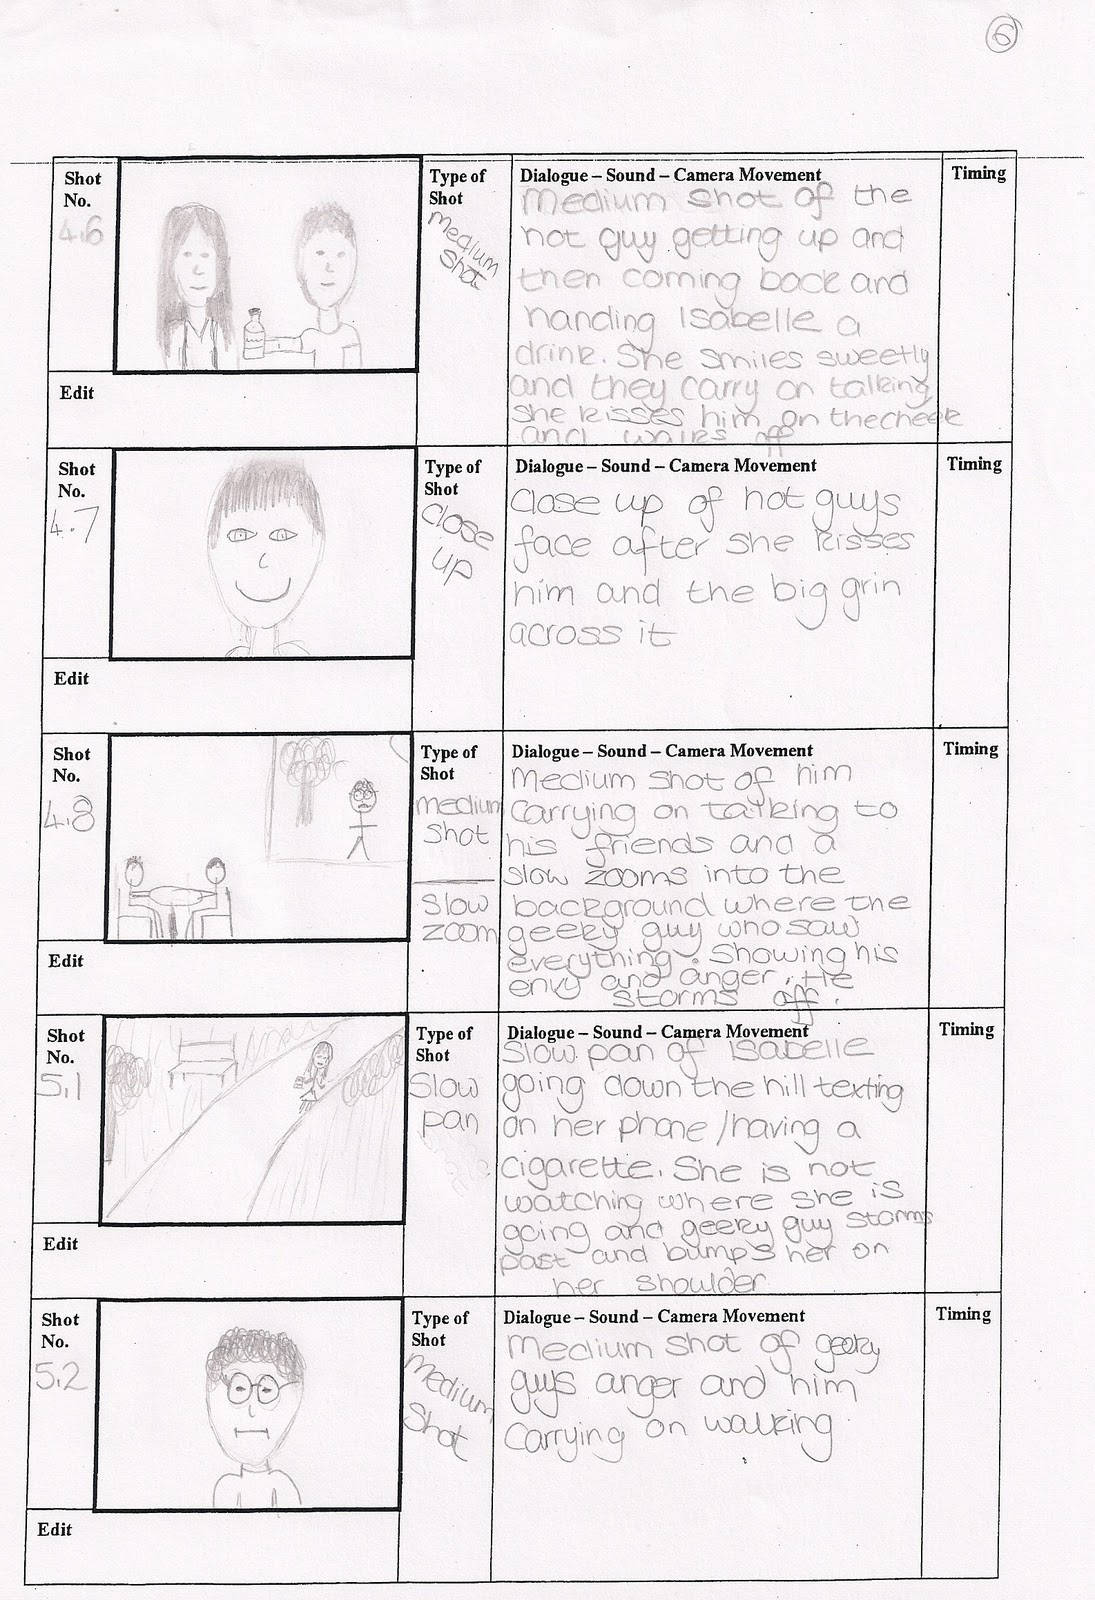 6
Shot
No.
4.6
Type of
Shot
Medium
Shot
Dialogue – Sound – Camera Movement
Medium shot of the
hot guy getting up and
then coming back and
handing Isabelle a
drink. She smiles sweetly
and they carry on talking
she kisses him on the cheek
and walks off
Timing
Edit
Shot
No.
4.7
Type of
Shot
Close
up
Dialogue – Sound – Camera Movement
Close up of hot guys
face after she kisses
him and the big grin
across it
Timing
Edit
Shot
No.
4.8
Type of
Shot
medium
shot
slow
zoom
Dialogue – Sound – Camera Movement
Medium shot of him
carrying on talking to
his friends and a
slow zooms into the
background where the
geeky guy who saw
everything. Showing his
envy and anger. He
storms off.
Timing
Edit
Shot
No.
5.1
Type of
Shot
Slow
pan
Dialogue – Sound – Camera Movement
Slow pan of Isabelle
going down the hill texting
on her phone/having a
cigarette. She is not
watching where she is
going and geeky guy storms
past and bumps her on
her shoulder
Timing
Edit
Shot
No.
5.2
Type of
Shot
Medium
Shot
Dialogue – Sound – Camera Movement
Medium shot of geeky
guys anger and him
carrying on walking
Timing
Edit